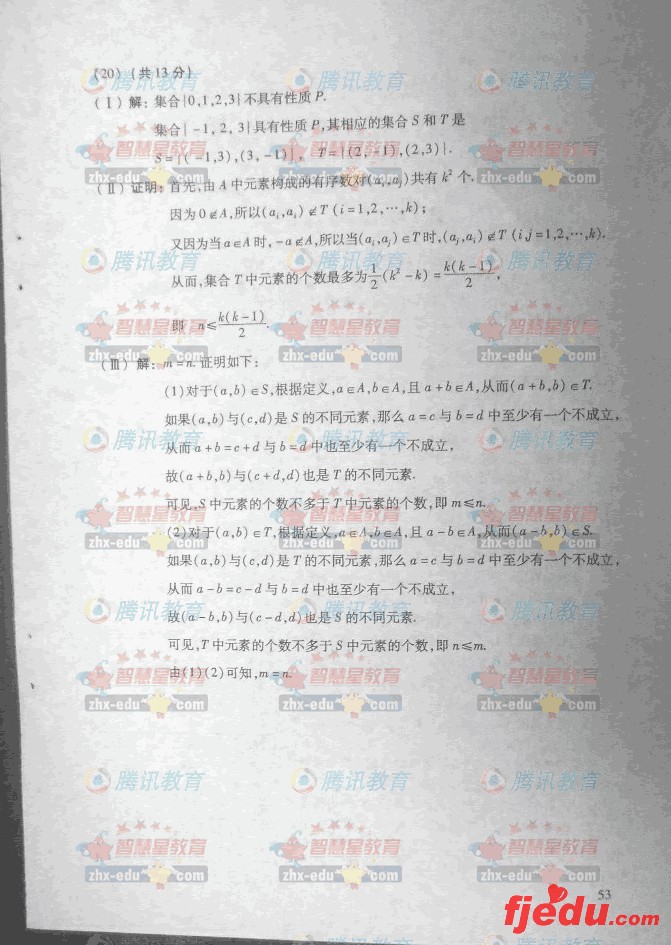 (20) (共13分)
(Ⅰ) 解: 集合{0,1,2,3}不具有性质P.
集合{-1,2,3}具有性质P,其相应的集合S和T是
S={(-1,3),(3,-1)}, T={(2,-1),(2,3)}.
(Ⅱ) 证明: 首先,由A中元素构成的有序数对(aᵢ,aⱼ)共有k²个.
因为0∉A,所以(aᵢ,aᵢ)∉T (i=1,2,…,k);
又因为当a∈A时,-a∉A,所以当(aᵢ,aⱼ)∈T时,(aⱼ,aᵢ)∉T (i,j=1,2,…,k).
从而,集合T中元素的个数最多为1/2(k²-k)=k(k-1)/2,
即 n≤k(k-1)/2.
(Ⅲ) 解: m=n.证明如下:
(1)对于(a,b)∈S,根据定义,a∈A,b∈A,且a+b∈A,从而(a+b,b)∈T.
如果(a,b)与(c,d)是S的不同元素,那么a=c与b=d中至少有一个不成立,
从而a+b=c+d与b=d中也至少有一个不成立,
故(a+b,b)与(c+d,d)也是T的不同元素.
可见,S中元素的个数不多于T中元素的个数,即m≤n.
(2)对于(a,b)∈T,根据定义,a∈A,b∈A,且a-b∈A,从而(a-b,b)∈S.
如果(a,b)与(c,d)是T的不同元素,那么a=c与b=d中至少有一个不成立,
从而a-b=c-d与b=d中也至少有一个不成立,
故(a-b,b)与(c-d,d)也是S的不同元素.
可见,T中元素的个数不多于S中元素的个数,即n≤m.
由(1)(2)可知,m=n.
腾讯教育
智慧星教育
zhx-edu com
53
fjedu.com